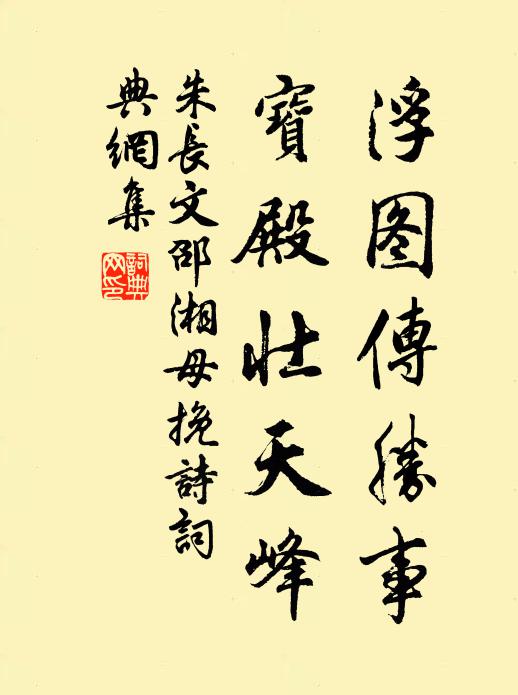 浮图傳勝事
寶殿壯天峰
朱長文邵湘母挽詩詞
典網集
詞典
网印